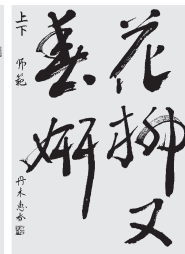 花柳又
春妍
上下 師範 丹木恵